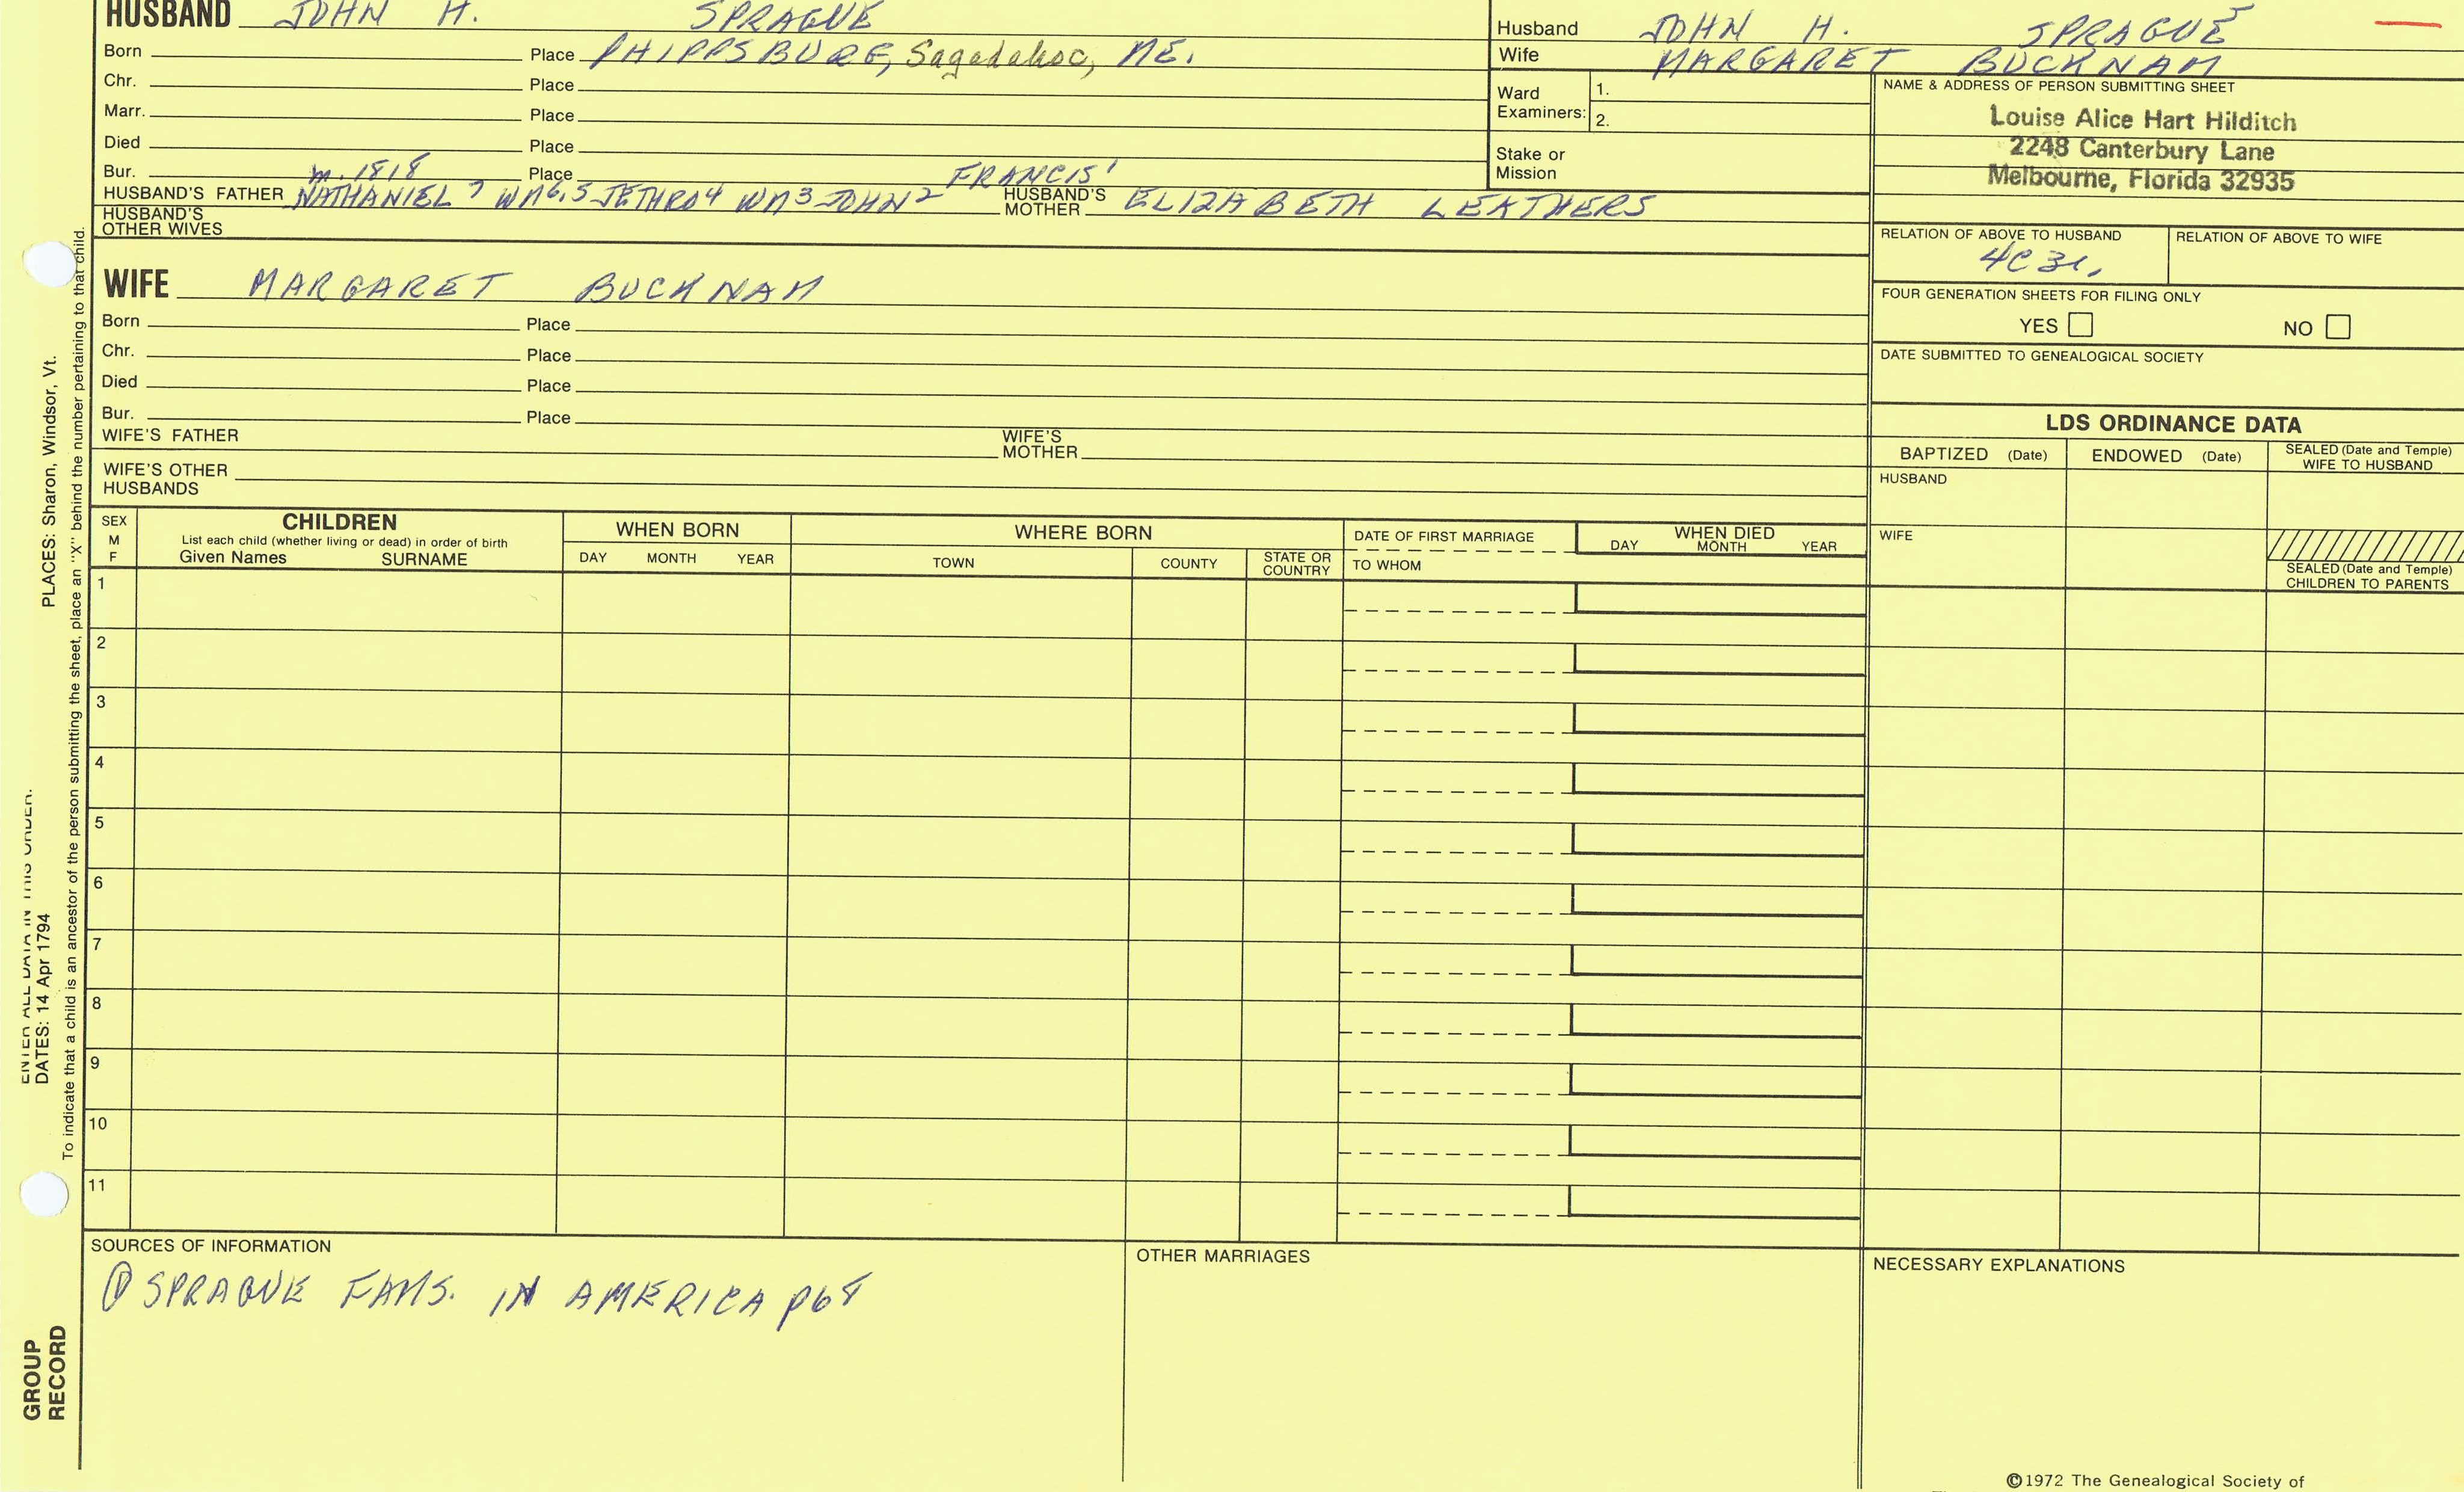 HUSBAND JOHN H. SPRAGUE
Born Place PHIPPSBURG, Sagadahoc, ME.
Chr. Place
Marr. Place
Died Place
Bur. Place
m. 1818
HUSBAND'S FATHER NATHANIEL 7 WM6,5 JETHRO4 WM3 JOHN2 FRANCIS1 HUSBAND'S MOTHER ELIZABETH LEATHERS
HUSBAND'S OTHER WIVES
Husband JOHN H. SPRAGUE
Wife MARGARET BUCKNAM
Ward Examiners: 1.
2.
Stake or Mission
NAME & ADDRESS OF PERSON SUBMITTING SHEET
Louise Alice Hart Hilditch
2248 Canterbury Lane
Melbourne, Florida 32935
RELATION OF ABOVE TO HUSBAND RELATION OF ABOVE TO WIFE
FOUR GENERATION SHEETS FOR FILING ONLY
YES NO
DATE SUBMITTED TO GENEALOGICAL SOCIETY
WIFE MARGARET BUCKNAM
Born Place
Chr. Place
Died Place
Bur. Place
WIFE'S FATHER WIFE'S MOTHER
WIFE'S OTHER HUSBANDS
LDS ORDINANCE DATA
BAPTIZED (Date) ENDOWED (Date) SEALED (Date and Temple) WIFE TO HUSBAND
HUSBAND
WIFE
SEALED (Date and Temple) CHILDREN TO PARENTS
SEX M F
CHILDREN
List each child (whether living or dead) in order of birth
Given Names SURNAME
WHEN BORN
DAY MONTH YEAR
WHERE BORN
TOWN COUNTY STATE OR COUNTRY
DATE OF FIRST MARRIAGE
TO WHOM
WHEN DIED
DAY MONTH YEAR
1
2
3
4
5
6
7
8
9
10
11
SOURCES OF INFORMATION
① SPRAGUE FAMS. IN AMERICA p68
OTHER MARRIAGES
NECESSARY EXPLANATIONS
©1972 The Genealogical Society of
ENTER ALL DATA IN THIS ORDER.
DATES: 14 Apr 1794 PLACES: Sharon, Windsor, Vt.
To indicate that a child is an ancestor of the person submitting the sheet, place an "X" behind the number pertaining to that child.
GROUP
RECORD